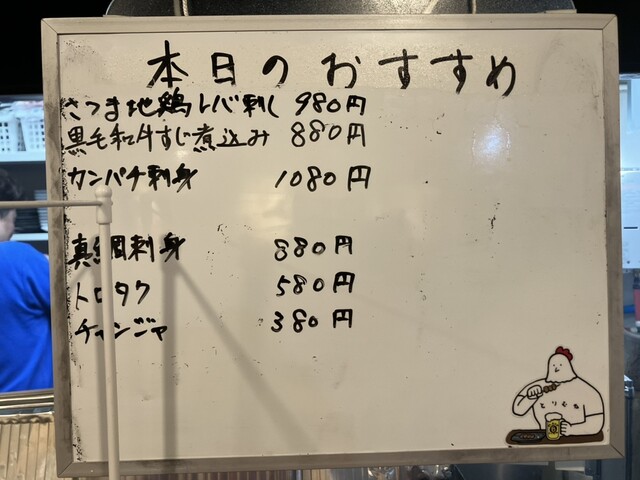 本日のおすすめ
さつま地鶏レバ刺し 980円
黒毛和牛すじ煮込み 880円
カンパチ刺身 1080円
真鯛刺身 880円
トロタク 580円
チャンジャ 380円
とりむね